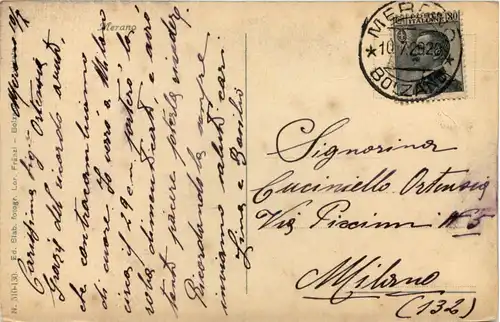 Merano
Merano 10/7
Carissima Sig. Ortensia
Grazie del ricordo avuto
che contraccambiamo
di cuore. Io verrò a Milano
circa il 29 cm. porterò la
roba dimenticata e avrò
tanto piacere poterla rivedere.
Ricordandola sempre
inviamo saluti cari.
Lina e Basilio
MERANO
10.7.29.20
* BOLZANO *
Signorina
Cuciniello Ortensia
Via Piccinni N° 5
Milano
(132)
N. 510-130. - Ed. Stab. fotogr. Lor. Fränzl - Bolzano